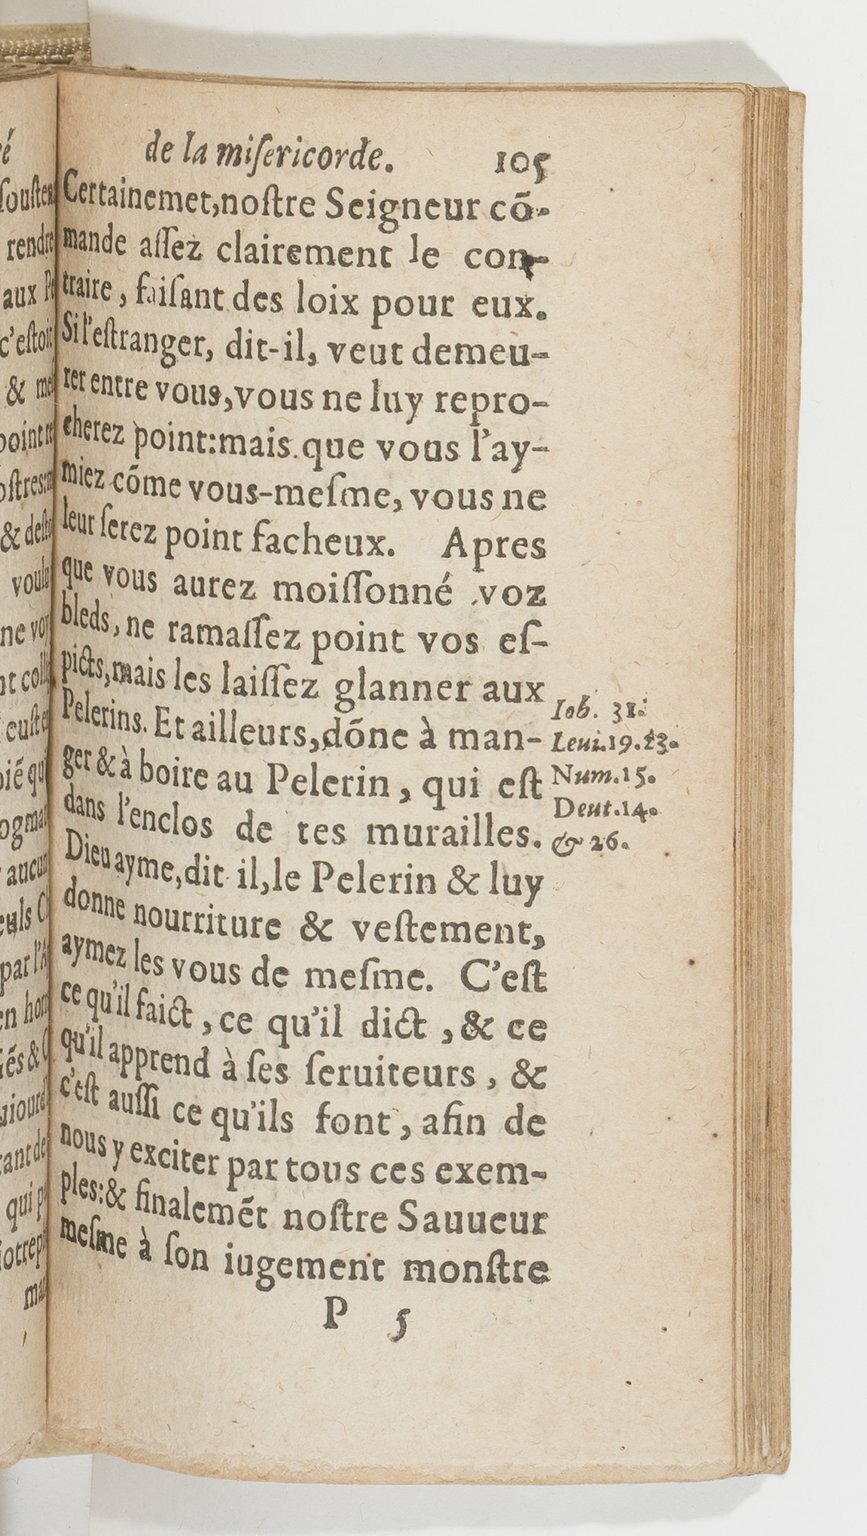 de la miſericorde. 105
Certainemet,noſtre Seigneur cõ-
mande aſſez clairement le con-
traire, faiſant des loix pour eux.
Si l'eſtranger, dit-il, veut demeu-
rer entre vous,vous ne luy repro-
cherez point:mais que vous l'ay-
miez cõme vous-meſme, vous ne
leur ſerez point facheux. Apres
que vous aurez moiſſonné voz
bleds, ne ramaſſez point vos eſ-
picts,mais les laiſſez glanner aux
Pelerins. Et ailleurs,dõne à man-
ger & à boire au Pelerin, qui eſt
dans l'enclos de tes murailles.
Dieu ayme,dit il,le Pelerin & luy
donne nourriture & veſtement,
aymez les vous de meſme. C'eſt
ce qu'il faict, ce qu'il dict, & ce
qu'il apprend à ſes ſeruiteurs, &
c'eſt auſſi ce qu'ils font, afin de
nous y exciter par tous ces exem-
ples:& finalemẽt noſtre Sauueur
meſme à ſon iugement monſtre
P 5
Iob. 31.
Leui.19.23.
Num.15.
Deut.14.
& 26.
ſouſten
rendre
c'eſtoit
& me
point
voule
qui